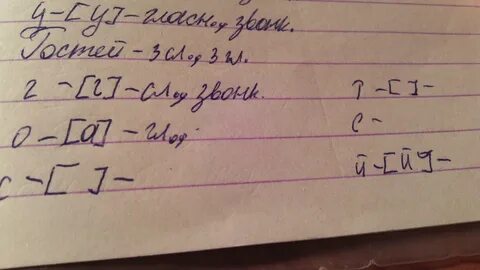 у - [у] - гласн. звонк.
Гостей - 3 сл. 3 гл.
г - [г] - сл звонк.
о - [а] - гл
с - [ ] -
т - [ ] -
е -
й - [й'] -